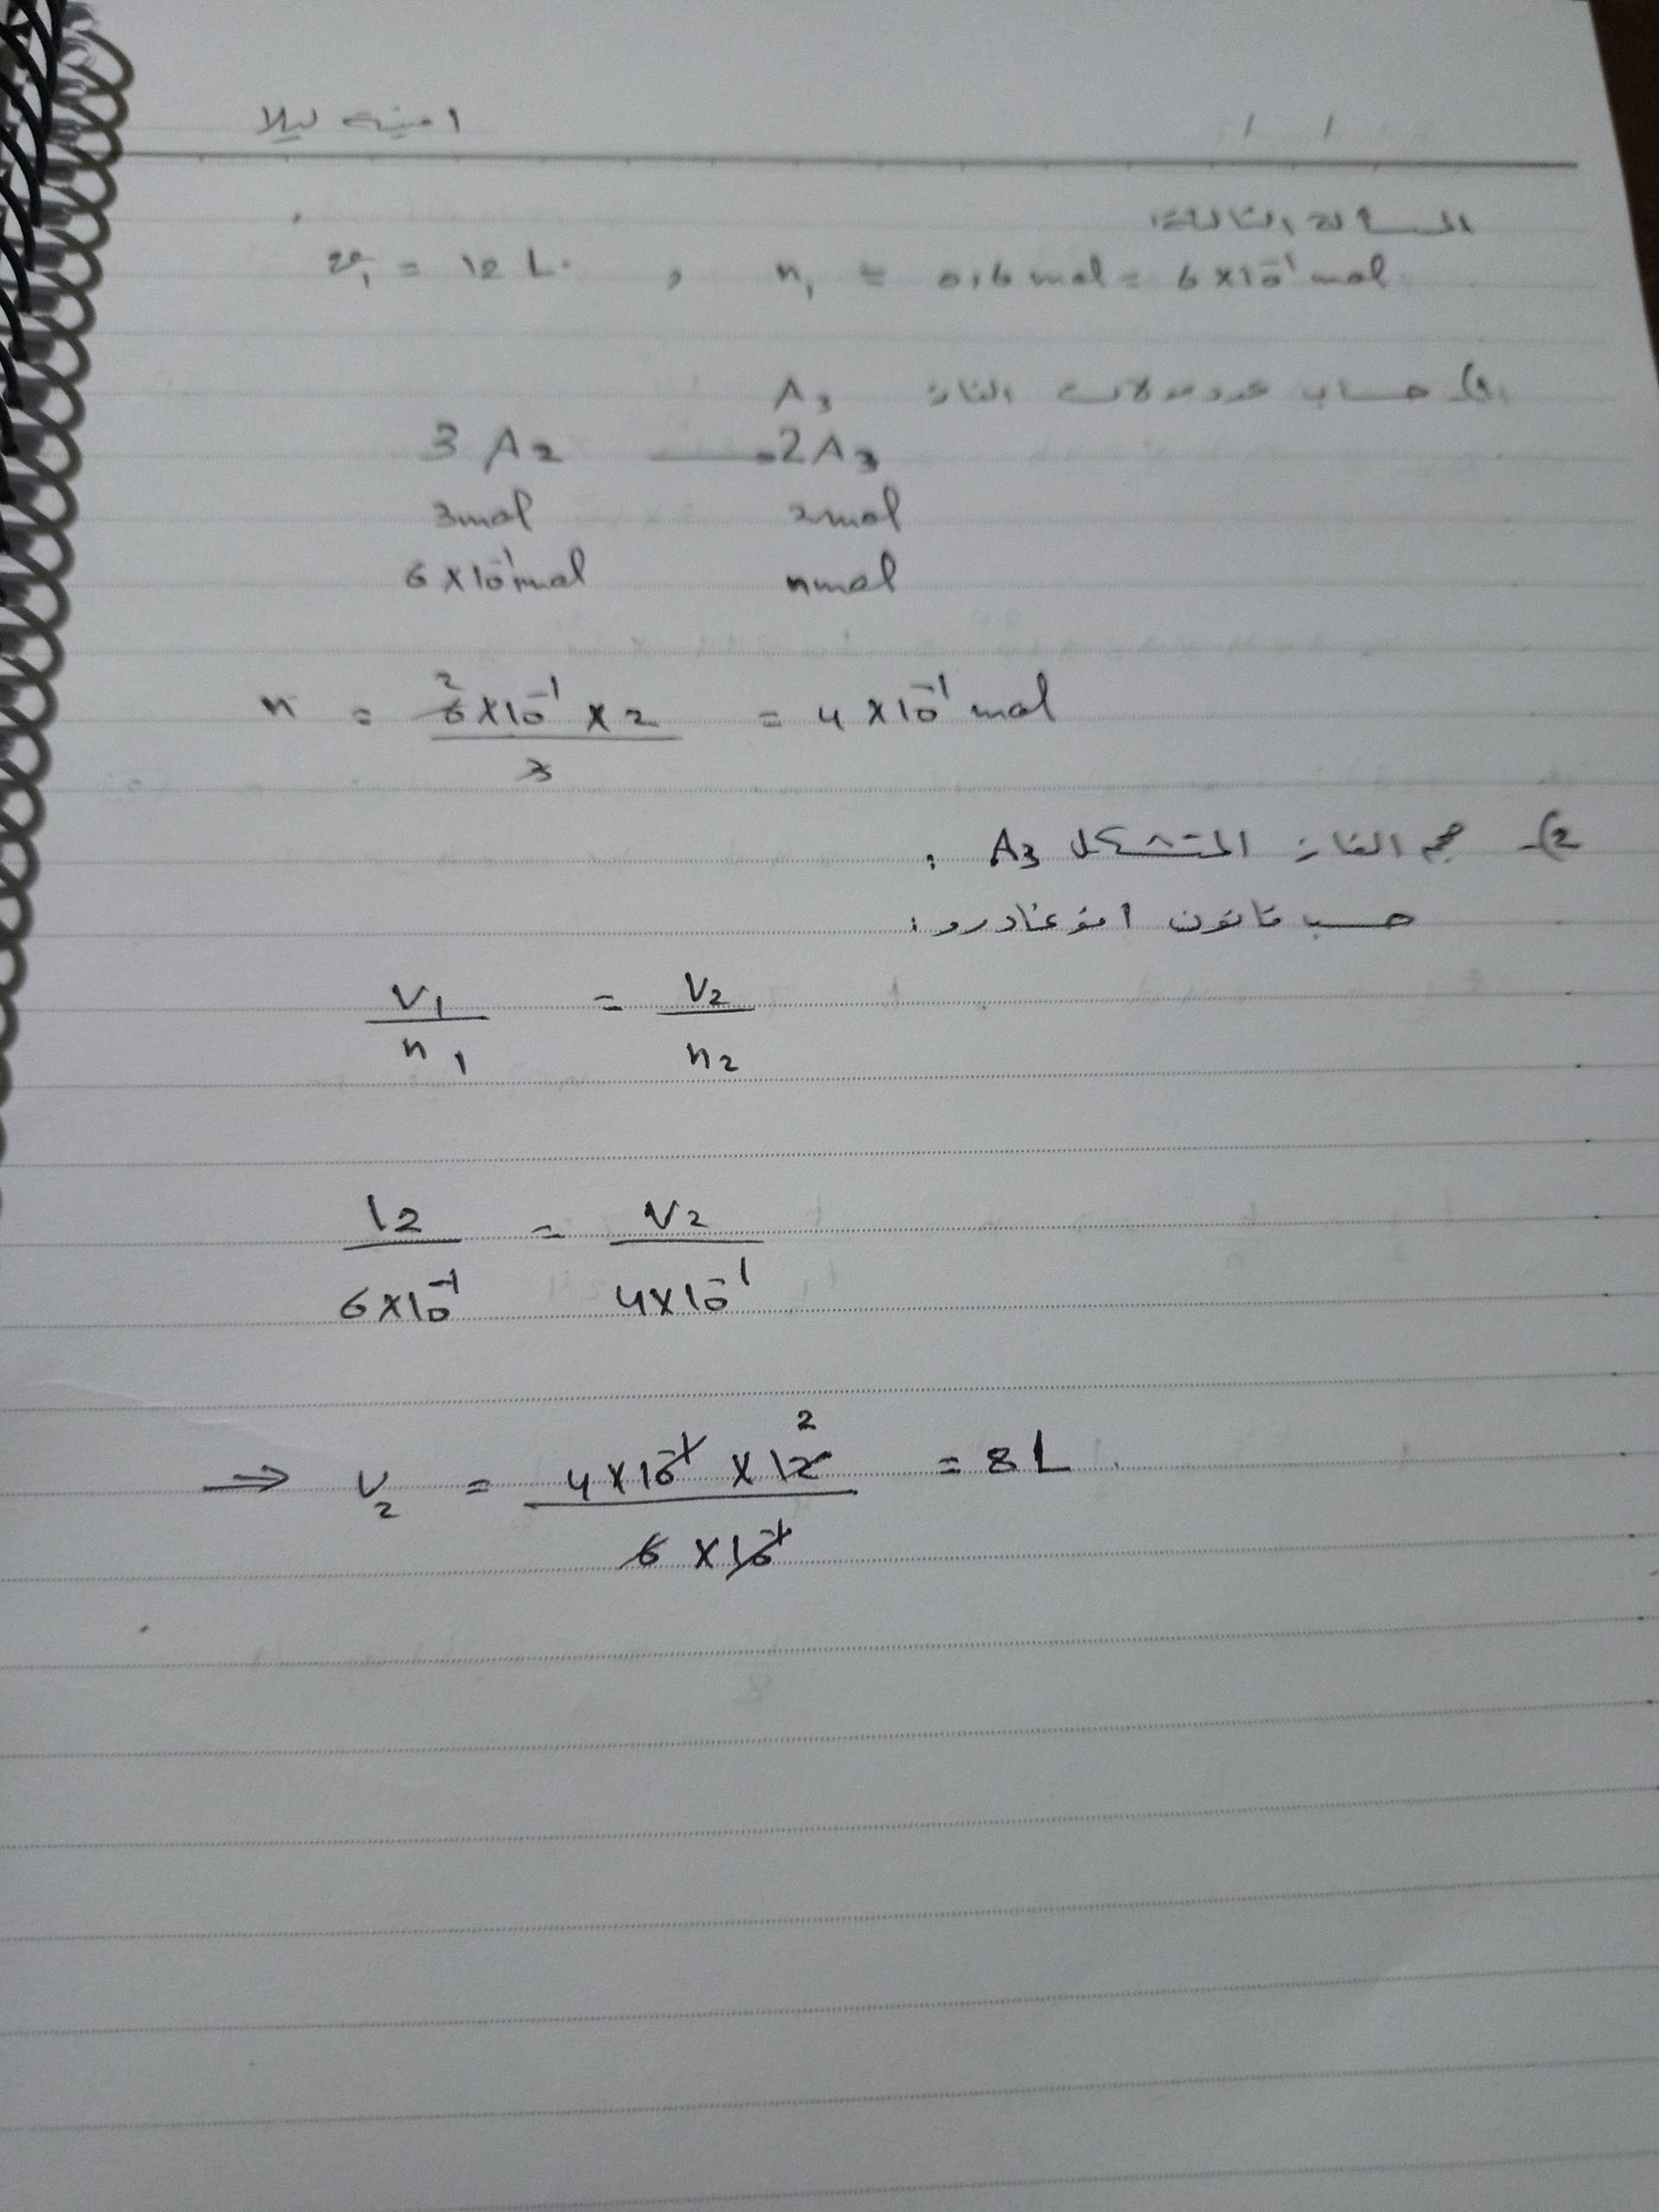 امينه ليلا
/ /
المسألة الثالثة:
v₁ = 12 L. , n₁ = 0,6 mol = 6 × 10⁻¹ mol
1)- حساب عدد مولات الغاز A₃
3 A₂ → 2 A₃
3mol 2mol
6 × 10⁻¹ mol n mol
n = 6 × 10⁻¹ × 2 / 3 = 4 × 10⁻¹ mol
2)- حجم الغاز المتشكل A₃ :
حسب قانون افوغادرو :
V₁ / n₁ = V₂ / n₂
12 / 6×10⁻¹ = V₂ / 4×10⁻¹
⇒ V₂ = 4 × 10⁻¹ × 12 / 6 × 10⁻¹ = 8 L .